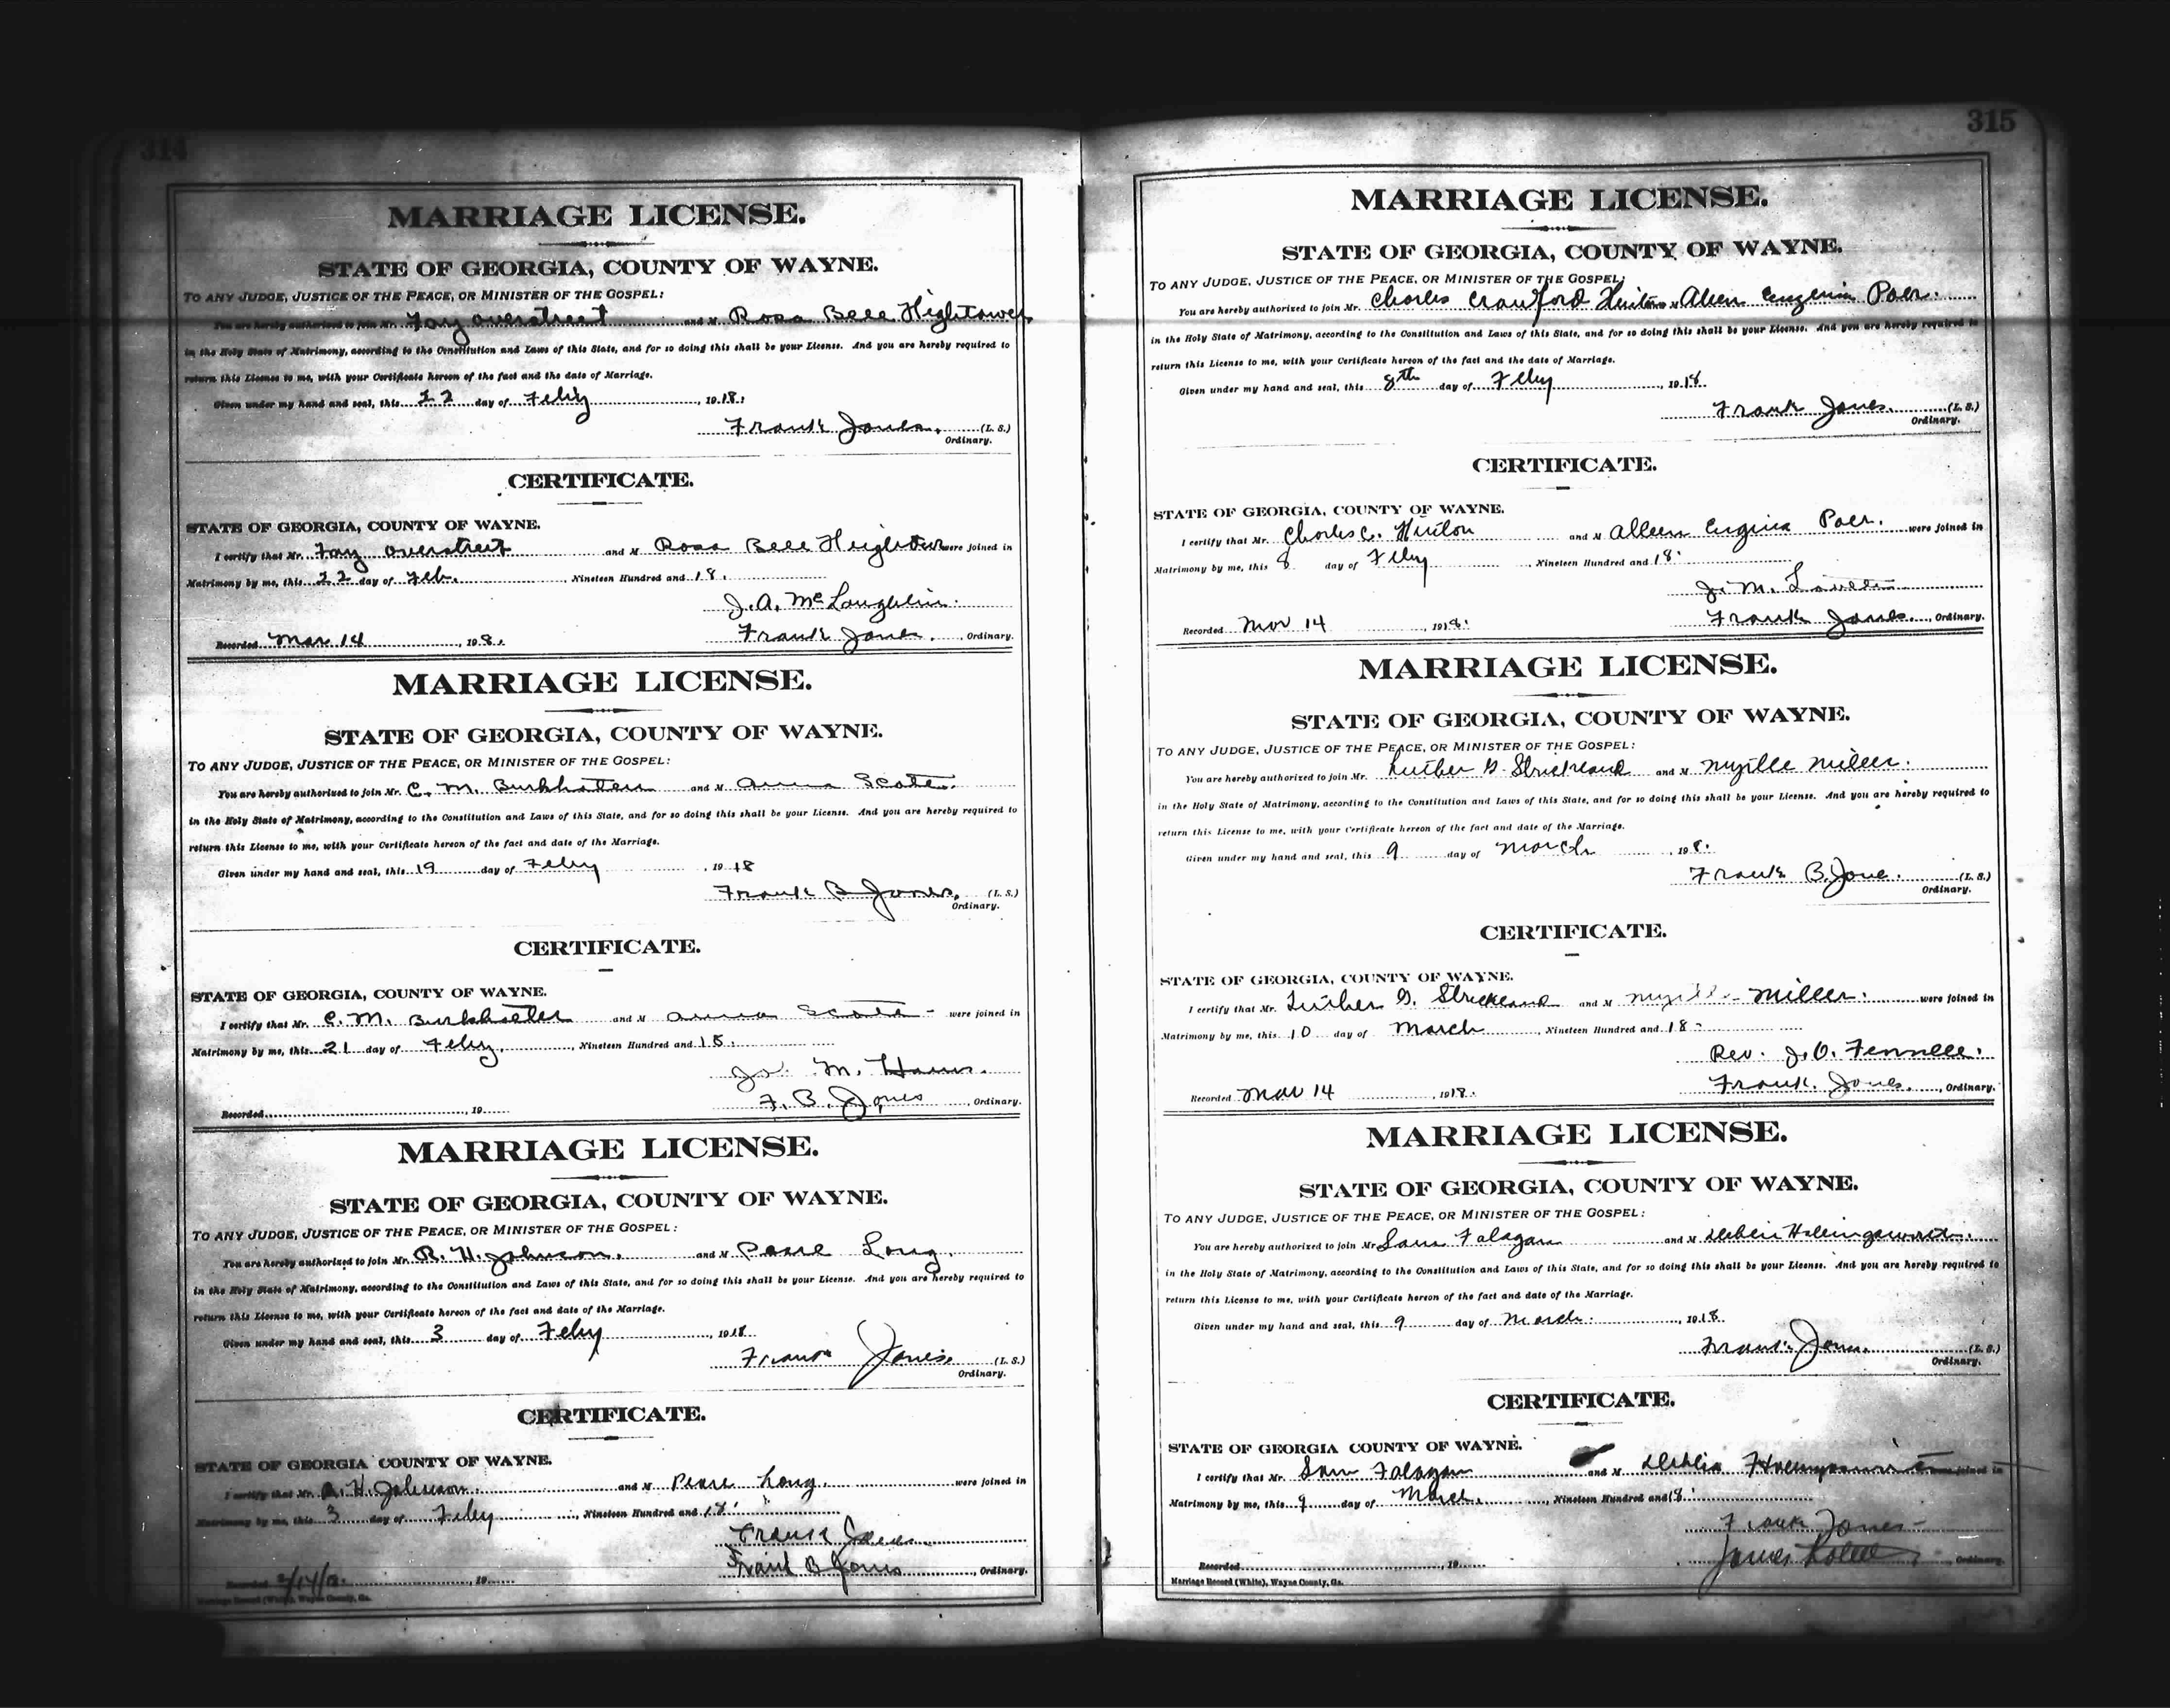 314
MARRIAGE LICENSE.
STATE OF GEORGIA, COUNTY OF WAYNE.
TO ANY JUDGE, JUSTICE OF THE PEACE, OR MINISTER OF THE GOSPEL:
You are hereby authorized to join Mr. Foy Overstreet and M Rosa Bell Hightower
in the Holy State of Matrimony, according to the Constitution and Laws of this State, and for so doing this shall be your License. And you are hereby required to
return this License to me, with your Certificate hereon of the fact and the date of Marriage.
Given under my hand and seal, this 22 day of Feby, 1918.
Frank Jones. (L. S.)
Ordinary.
CERTIFICATE.
STATE OF GEORGIA, COUNTY OF WAYNE.
I certify that Mr. Foy Overstreet and M Rosa Bell Hightower were joined in
Matrimony by me, this 22 day of Feb., Nineteen Hundred and 18.
J. A. McLaughlin.
Recorded Mar 14, 198. Frank Jones., Ordinary.
MARRIAGE LICENSE.
STATE OF GEORGIA, COUNTY OF WAYNE.
TO ANY JUDGE, JUSTICE OF THE PEACE, OR MINISTER OF THE GOSPEL:
You are hereby authorized to join Mr. C. M. Burkhalter and M Anna Scott.
in the Holy State of Matrimony, according to the Constitution and Laws of this State, and for so doing this shall be your License. And you are hereby required to
return this License to me, with your Certificate hereon of the fact and date of the Marriage.
Given under my hand and seal, this 19 day of Feby, 1918
Frank B Jones, (L. S.)
Ordinary.
CERTIFICATE.
STATE OF GEORGIA, COUNTY OF WAYNE.
I certify that Mr. C. M. Burkhalter and M Anna Scott were joined in
Matrimony by me, this 21 day of Feby., Nineteen Hundred and 18.
M.
F. B. Jones, Ordinary.
Recorded, 19
MARRIAGE LICENSE.
STATE OF GEORGIA, COUNTY OF WAYNE.
TO ANY JUDGE, JUSTICE OF THE PEACE, OR MINISTER OF THE GOSPEL:
You are hereby authorized to join Mr. R. H. Johnson. and M Pearl Long.
in the Holy State of Matrimony, according to the Constitution and Laws of this State, and for so doing this shall be your License. And you are hereby required to
return this License to me, with your Certificate hereon of the fact and date of the Marriage.
Given under my hand and seal, this 3 day of Feby, 1918
Frank Jones. (L. S.)
Ordinary.
CERTIFICATE.
STATE OF GEORGIA COUNTY OF WAYNE.
I certify that Mr. R. H. Johnson. and M Pearl Long. were joined in
Matrimony by me, this 3 day of Feby, Nineteen Hundred and 18.
Frank Jones
Frank B Jones, Ordinary.
Recorded, 19
Marriage Record (White), Wayne County, Ga.
315
MARRIAGE LICENSE.
STATE OF GEORGIA, COUNTY OF WAYNE.
TO ANY JUDGE, JUSTICE OF THE PEACE, OR MINISTER OF THE GOSPEL:
You are hereby authorized to join Mr. Charles Crawford Hinton Aleen Eugenia Poer.
in the Holy State of Matrimony, according to the Constitution and Laws of this State, and for so doing this shall be your License. And you are hereby required to
return this License to me, with your Certificate hereon of the fact and the date of Marriage.
Given under my hand and seal, this 8th day of Feby, 1918.
Frank Jones. (L. S.)
Ordinary.
CERTIFICATE.
STATE OF GEORGIA, COUNTY OF WAYNE.
I certify that Mr. Charles C. Hinton and M Alleen Eugina Poer. were joined in
Matrimony by me, this 8 day of Feby, Nineteen Hundred and 18.
J. M.
Recorded Mar 14, 1918. Frank Jones., Ordinary.
MARRIAGE LICENSE.
STATE OF GEORGIA, COUNTY OF WAYNE.
TO ANY JUDGE, JUSTICE OF THE PEACE, OR MINISTER OF THE GOSPEL:
You are hereby authorized to join Mr. Luther G. Strickland and M Myrtle Miller.
in the Holy State of Matrimony, according to the Constitution and Laws of this State, and for so doing this shall be your License. And you are hereby required to
return this License to me, with your Certificate hereon of the fact and date of the Marriage.
Given under my hand and seal, this 9 day of March, 198.
Frank B. Jone. (L. S.)
Ordinary.
CERTIFICATE.
STATE OF GEORGIA, COUNTY OF WAYNE.
I certify that Mr. Luther G. Strickland and M Myrtle Miller. were joined in
Matrimony by me, this 10 day of March, Nineteen Hundred and 18.
Rev. J. O. Fennell.
Recorded Mar 14, 1918. Frank. Jones., Ordinary.
MARRIAGE LICENSE.
STATE OF GEORGIA, COUNTY OF WAYNE.
TO ANY JUDGE, JUSTICE OF THE PEACE, OR MINISTER OF THE GOSPEL:
You are hereby authorized to join Mr Sam Falagan and M
in the Holy State of Matrimony, according to the Constitution and Laws of this State, and for so doing this shall be your License. And you are hereby required to
return this License to me, with your Certificate hereon of the fact and date of the Marriage.
Given under my hand and seal, this 9 day of March., 1918.
Frank Jones. (L. S.)
Ordinary.
CERTIFICATE.
STATE OF GEORGIA COUNTY OF WAYNE.
I certify that Mr. Sam Falagan and M were joined in
Matrimony by me, this 9 day of March., Nineteen Hundred and 18.
Frank Jones
James, Ordinary.
Recorded, 19
Marriage Record (White), Wayne County, Ga.